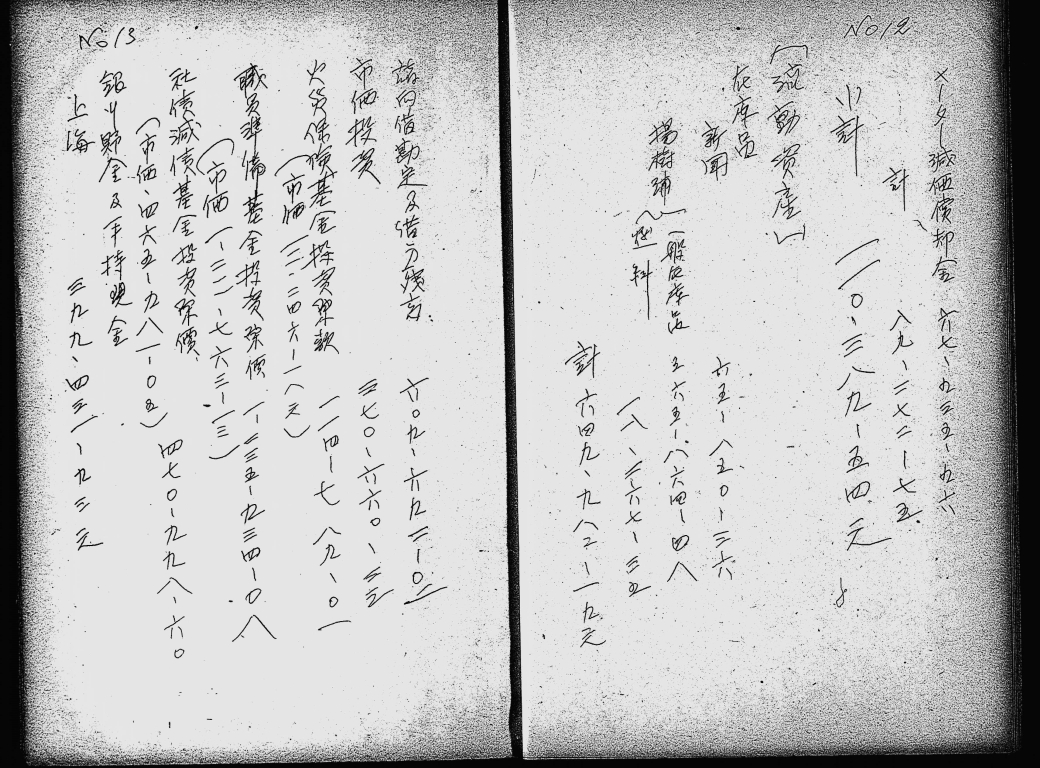 No 12
メーター減価償却金 六七、九三五、九六
計 八九、二七二一七五
小計 一一〇、三八九一五四元
(流動資産)
在庫品
新聞 六五、八五〇一二六
楊樹浦 一般在庫品 三六五、八六四一四八
燃料 一八、二六七一三五
計 六四九、九八二一一九元
No 13
諸口借勘定及借方残高 六〇九、六九二一〇二
市価投資 三七〇、六六〇、三三
火災保険基金投資 一一四一七八九、〇一
(市価 一三、二四六一一八元)
職員準備基金投資 一、三三五、九三四一〇八
(市価 一、二二一、七六三、一三)
社債減債基金投資 四七〇、九九八、六〇
(市価、四六五、九八一、〇五)
銀行預金及手持現金
上海 三九九、四三一、九三元